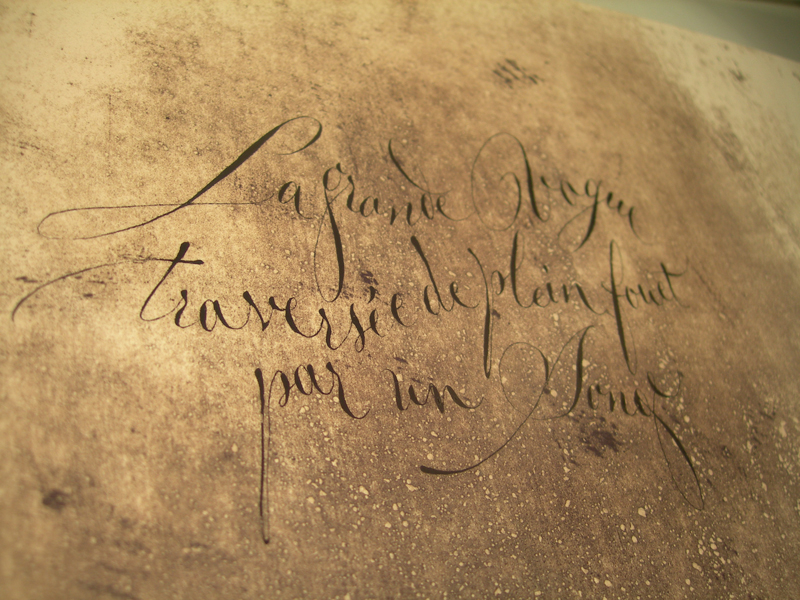 La grande Vague
traversée de plein fouet
par un Songe